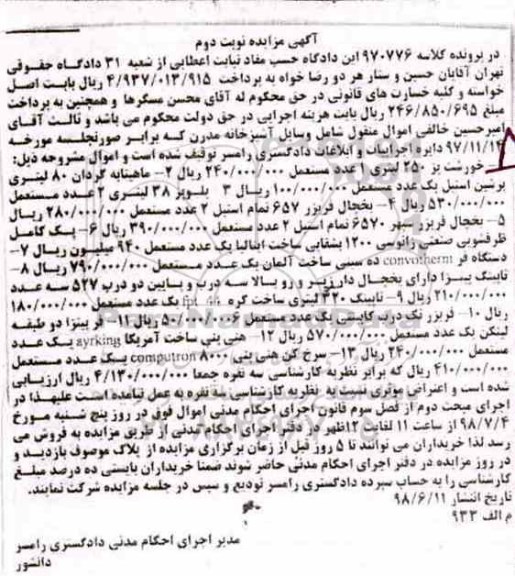 آگهی مزایده نوبت دوم
در پرونده کلاسه ۹۷۰۷۷۶ این دادگاه حسب مفاد نیابت اعطایی از شعبه ۳۱ دادگاه حقوقی
تهران آقایان حسین و ستار هر دو رضا خواه به پرداخت ۴/۹۳۷/۰۱۳/۹۱۵ ریال بابت اصل
خواسته و کلیه خسارت های قانونی در حق محکوم له آقای محسن مسگرها و همچنین به پرداخت
مبلغ ۲۴۶/۸۵۰/۶۹۵ ریال بابت هزینه اجرایی در حق دولت محکوم می باشد و ثالث آقای
امیرحسین خالقی اموال منقول شامل وسایل آشپزخانه مدرن که برابر صورتجلسه مورخه
۹۷/۱۱/۱۴ دایره اجرائیات و ابلاغات دادگستری رامسر توقیف شده است و اموال مشروحه ذیل:
خورشت پز ۲۵۰ لیتری ۱ عدد مستعمل ۲۴۰/۰۰۰/۰۰۰ ریال ۲- ماهیتابه گردان ۸۰ لیتری
پرشین استیل یک عدد مستعمل ۱۰۰/۰۰۰/۰۰۰ ریال ۳- بلوپز ۳۸ لیتری ۲ عدد مستعمل
۵۳۰/۰۰۰/۰۰۰ ریال ۴- یخچال فریزر ۶۵۷ تمام استیل ۲ عدد مستعمل ۲۸۰/۰۰۰/۰۰۰ ریال
۵- یخچال فریزر سپهر ۶۵۷۰ تمام استیل ۲ عدد مستعمل ۳۹۰/۰۰۰/۰۰۰ ریال ۶- پک کامل
ظرفشویی صنعتی زانوسی ۱۲۰۰ بشقابی ساخت ایتالیا یک عدد مستعمل ۹۴۰ میلیون ریال ۷-
دستگاه فر convotherm ده سینی ساخت آلمان یک عدد مستعمل ۷۹۰/۰۰۰/۰۰۰ ریال ۸-
تاپینگ پیتزا دارای یخچال دار زیر و رو بالا سه درب و پایین دو درب ۵۲۷ سه عدد
۲۱۰/۰۰۰/۰۰۰ ریال ۹- تاپینگ ۳۲۰ لیتری ساخت کره fpt 44 یک عدد مستعمل ۱۸۰/۰۰۰/۰۰۰
ریال ۱۰- فریزر تک درب کابینی یک عدد مستعمل ۵۰/۰۰۰/۰۰۶ ریال ۱۱- فر پیتزا دو طبقه
لینکن یک عدد مستعمل ۵۷۰/۰۰۰/۰۰۰ ریال ۱۲- هنی پنی ساخت آمریکا ayrking یک عدد
مستعمل ۲۴۰/۰۰۰/۰۰۰ ریال ۱۳- سرخ کن هنی پنی computron ۸۰۰۰ یک عدد مستعمل
۴۱۰/۰۰۰/۰۰۰ ریال که برابر نظریه کارشناسی سه نفره جمعا ۴/۱۳۰/۰۰۰/۰۰۰ ریال ارزیابی
شده است و اعتراض موثری نسبت به نظریه کارشناسی سه نفره به عمل نیامده است علیهذا در
اجرای مبحث دوم از فصل سوم قانون اجرای احکام مدنی اموال فوق در روز پنج شنبه مورخ
۹۸/۷/۴ از ساعت ۱۱ لغایت ۱۲ظهر در دفتر اجرای احکام مدنی از طریق مزایده به فروش می
رسد لذا خریداران می توانند تا ۵ روز قبل از زمان برگزاری مزایده از پلاک موصوف بازدید و
در روز مزایده در دفتر اجرای احکام مدنی حاضر شوند ضمنا خریداران بایستی ده درصد مبلغ
کارشناسی را به حساب سپرده دادگستری رامسر تودیع و سپس در جلسه مزایده شرکت نمایند.
تاریخ انتشار ۹۸/۶/۱۱
م الف ۹۳۳
مدیر اجرای احکام مدنی دادگستری رامسر
دانشور